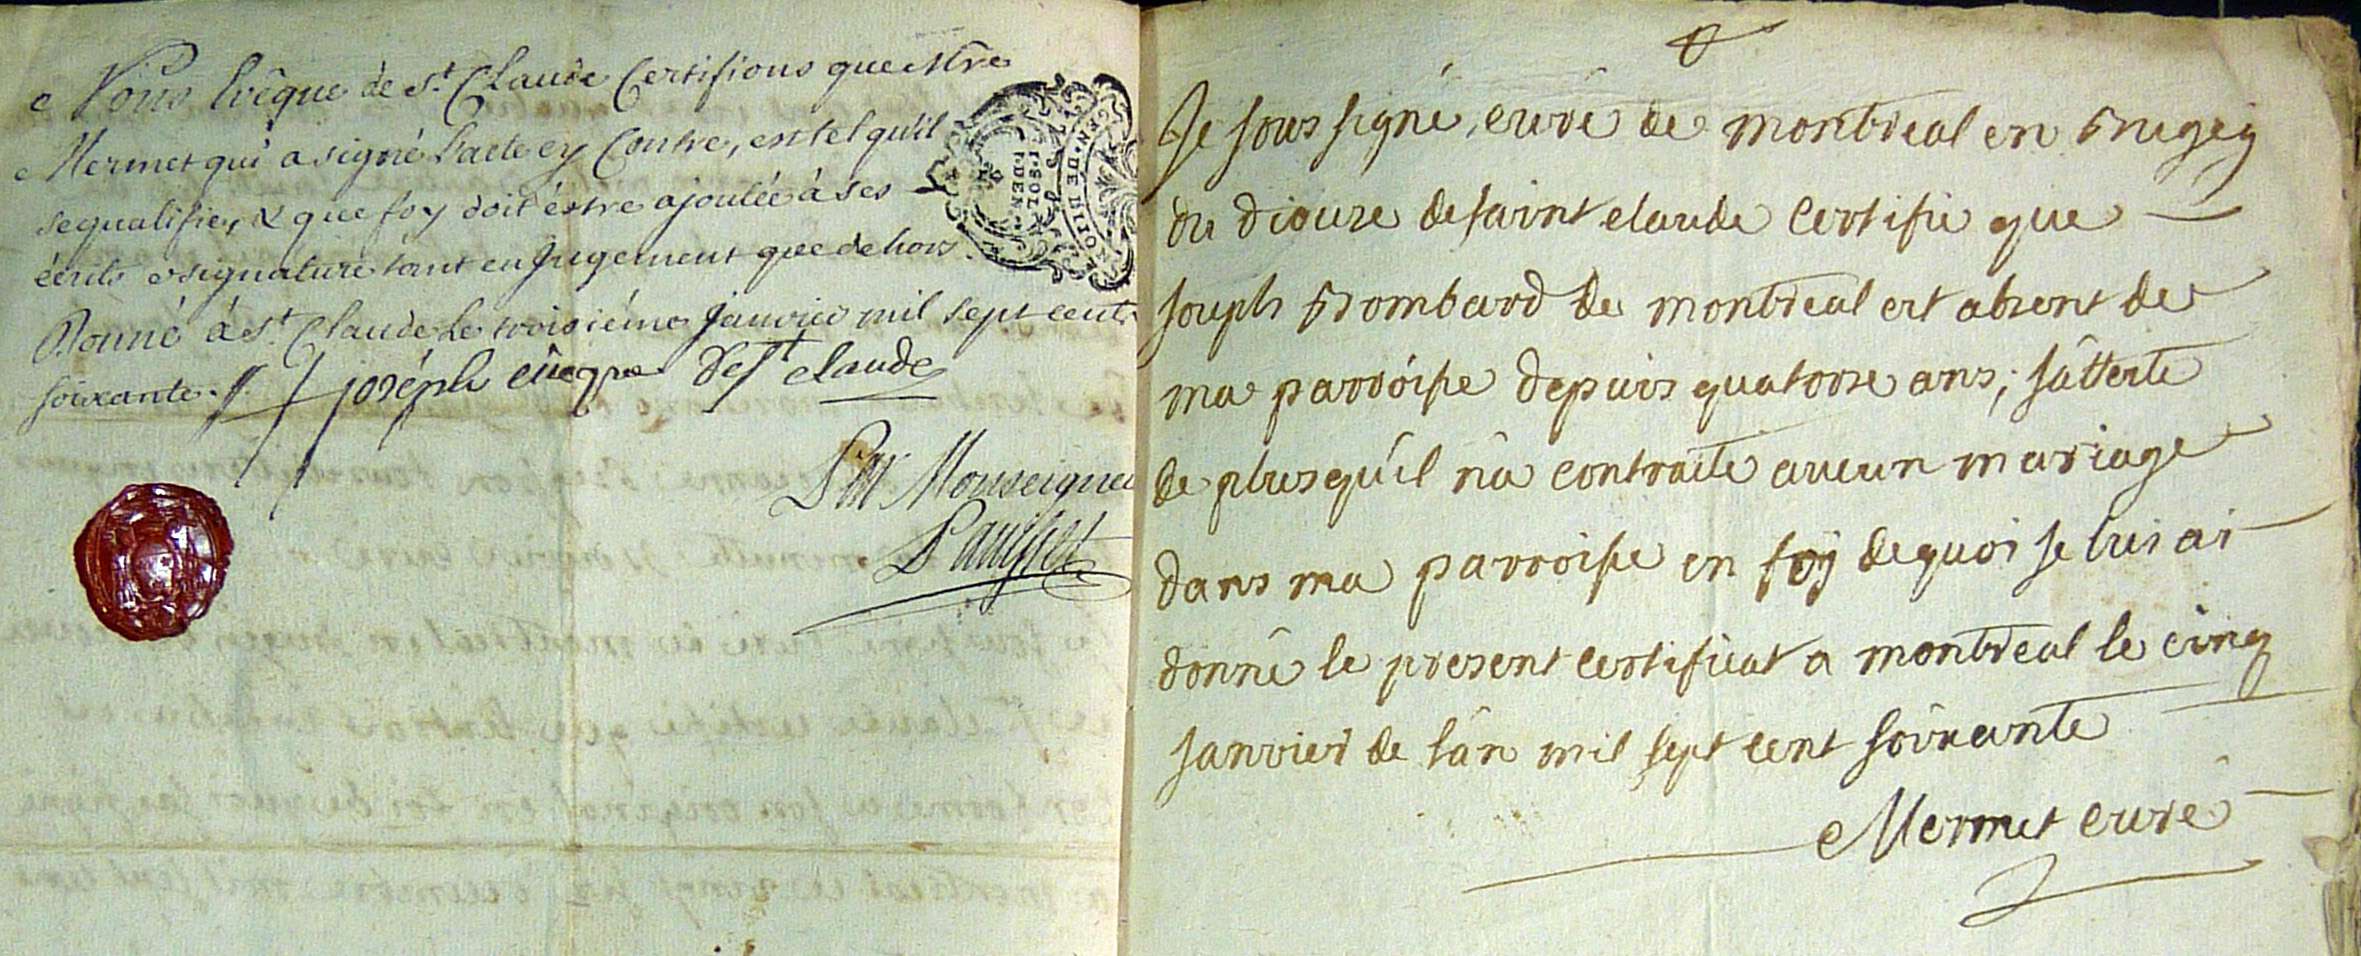 Nous Evêque de St. Claude Certifions que Mre
Mermet qui a signé l'acte cy Contre, est tel qu'il
se qualifie, & que foy doit éstre ajoutée à ses
écrits & signature tant en Jugement que dehors.
Donné à St. Claude Le troisiéme Janvier mil sept cent
soixante. //. † joséph evêque de St claude
Par Monseigneu
GEN. DE DIJON
1. SOL
4. DEN
Je soussigné, curé de montréal en Bugey
du diocese de saint claude certifie que
joseph Bombard de montréal est absent de
ma parroisse depuis quatorse ans; j'atteste
de plus qu'il n'a contracté aucun mariage
dans ma parroisse en foy de quoi je lui ai
donné le present certificat a montréal le cinq
janvier de l'an mil sept cent soixante
Mermet curé